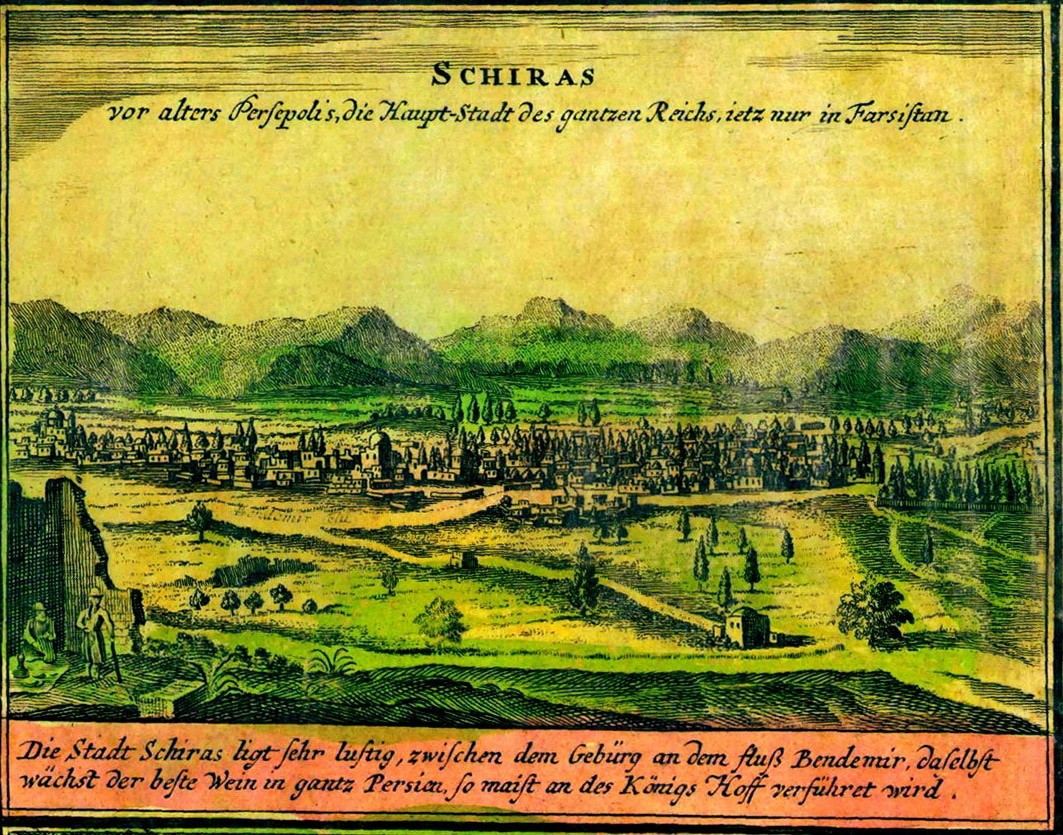 SCHIRAS
vor alters Perſepolis, die Haupt-Stadt des gantzen Reichs, ietz nur in Farsiſtan.
Die Stadt Schiras ligt ſehr luſtig, zwiſchen dem Gebürg an dem fluß Bendemir, daſelbſt
wächst der beſte Wein in gantz Persien, ſo maiſt an des Königs Hoff verführet wird.